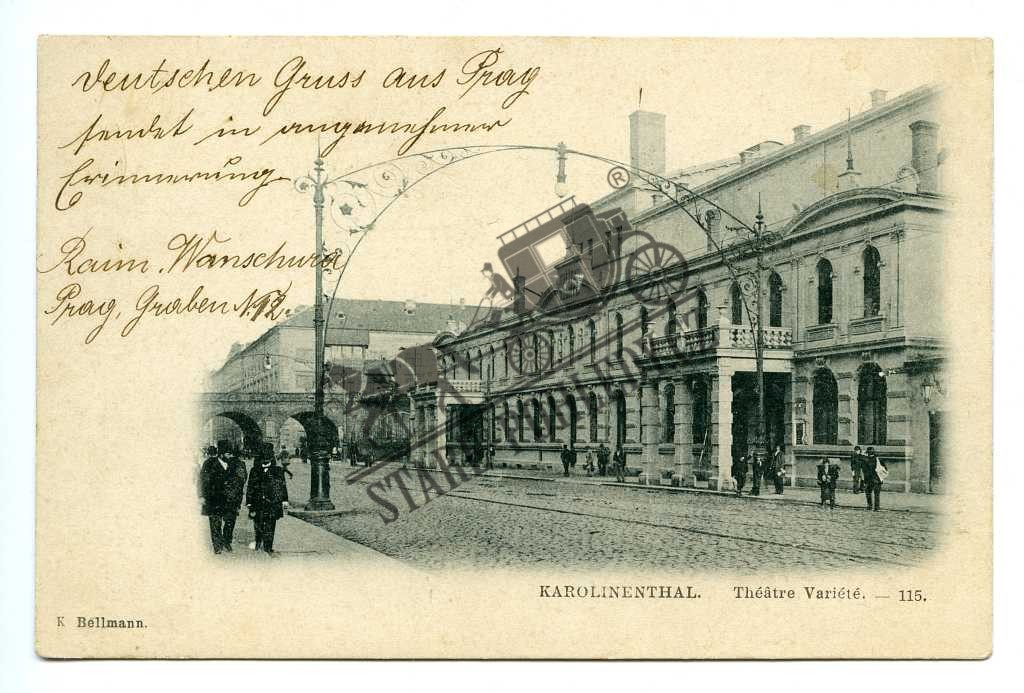 Deutschen Gruss aus Prag
sendet in angenehmer
Erinnerung
Raim. Wanschura
Prag, Graben N. 12.
®
STARÉ POHLEDNICE
KAROLINENTHAL. Théâtre Variété. — 115.
K Bellmann.